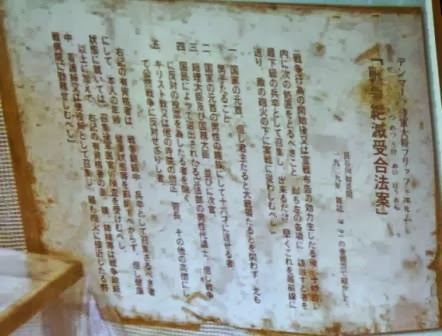 デンマーク 陸軍大将 フリッツ・ホルム
「戦争絶滅受合法案」
長谷川如是閑
一九二九年 雑誌 の巻頭言で紹介した
「戦争行為の開始後又は宣戦布告の効力の生じたる後、十時間以
内に次の処置をとるべきこと。即ち左の各項に該当する者を
最下級の兵卒として召集し、出来るだけ早くこれを最前線に
送り、敵の砲火の下に実戦に従わしむべし。
一 国家の元首。但し君主たると大統領たるとを問わず。尤も
男子たること。
二 国家の元首の男性の親族にして十六才に達せる者
三 総理大臣及び国務大臣、並びに次官。
四 国民によって選出されたる立法部の男性代議士。但し戦争
に反対の投票を為したる者を除く。
五 キリスト教又は他の寺院の僧正、管長、その他の高僧にし
て公然戦争に反対せざりし者。
右記の有資格者は、戦争継続中、兵卒として召集さるべき者
にして、本人の年齢、健康状態等を斟酌すべからず。但し健康
状態に就ては召集後軍医官の検査を受けしむべし。
以上に加えて、右記の有資格者の妻、娘、姉妹等は戦争継続
中、看護婦又は使役婦として召集し、最も砲火に接近したる野
戦病院に勤務せしむべし。」